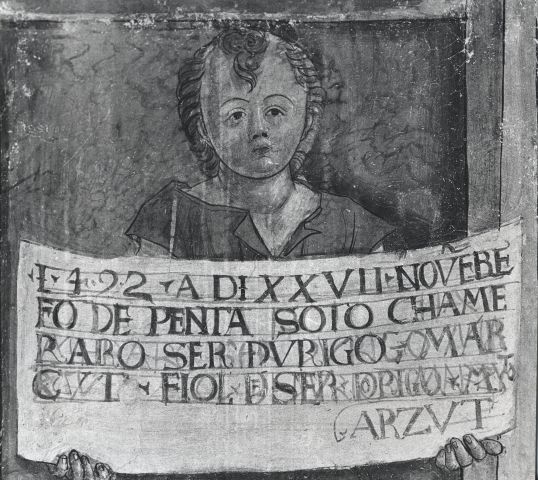 ·I·4·9·2· A DI XXVII· NOVEBE
FO DE PENTA SOTO CHAME
RARO SER DVRIGO MAR
CVT · FIOL SER
ARZVT